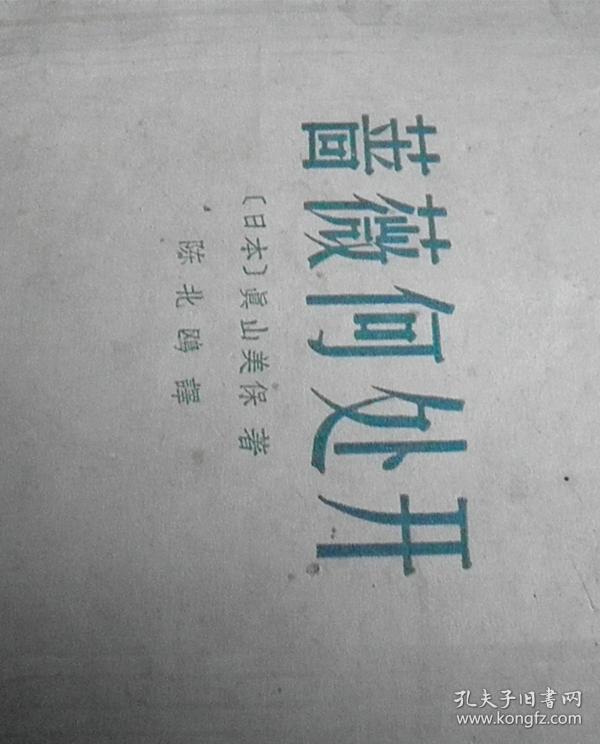 蔷薇何处开
〔日本〕眞山美保 著
陈北鸥 譯
孔夫子旧書网
www.kongfz.com